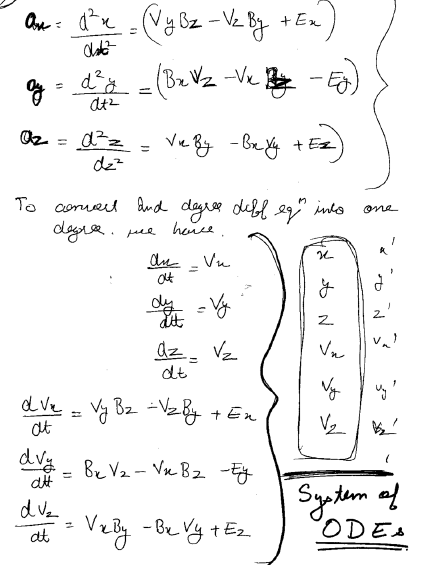 ax = d²x/dt² = (VyBz − VzBy + Ex)
ay = d²y/dt² = (BxVz − Vx Bz − Ey)
az = d²z/dz² = VxBy − BxVy + Ez)
To convert 2nd degree diff eqⁿ into one
degree. we have
dx/dt = Vx
dy/dt = Vy
dz/dt = Vz
dVx/dt = VyBz − VzBy + Ex
dVy/dt = BxVz − VxBz − Ey
dVz/dt = VxBy − BxVy + Ez
x x'
y y'
z z'
Vx Vx'
Vy Vy'
Vz Vz'
System of
ODEs